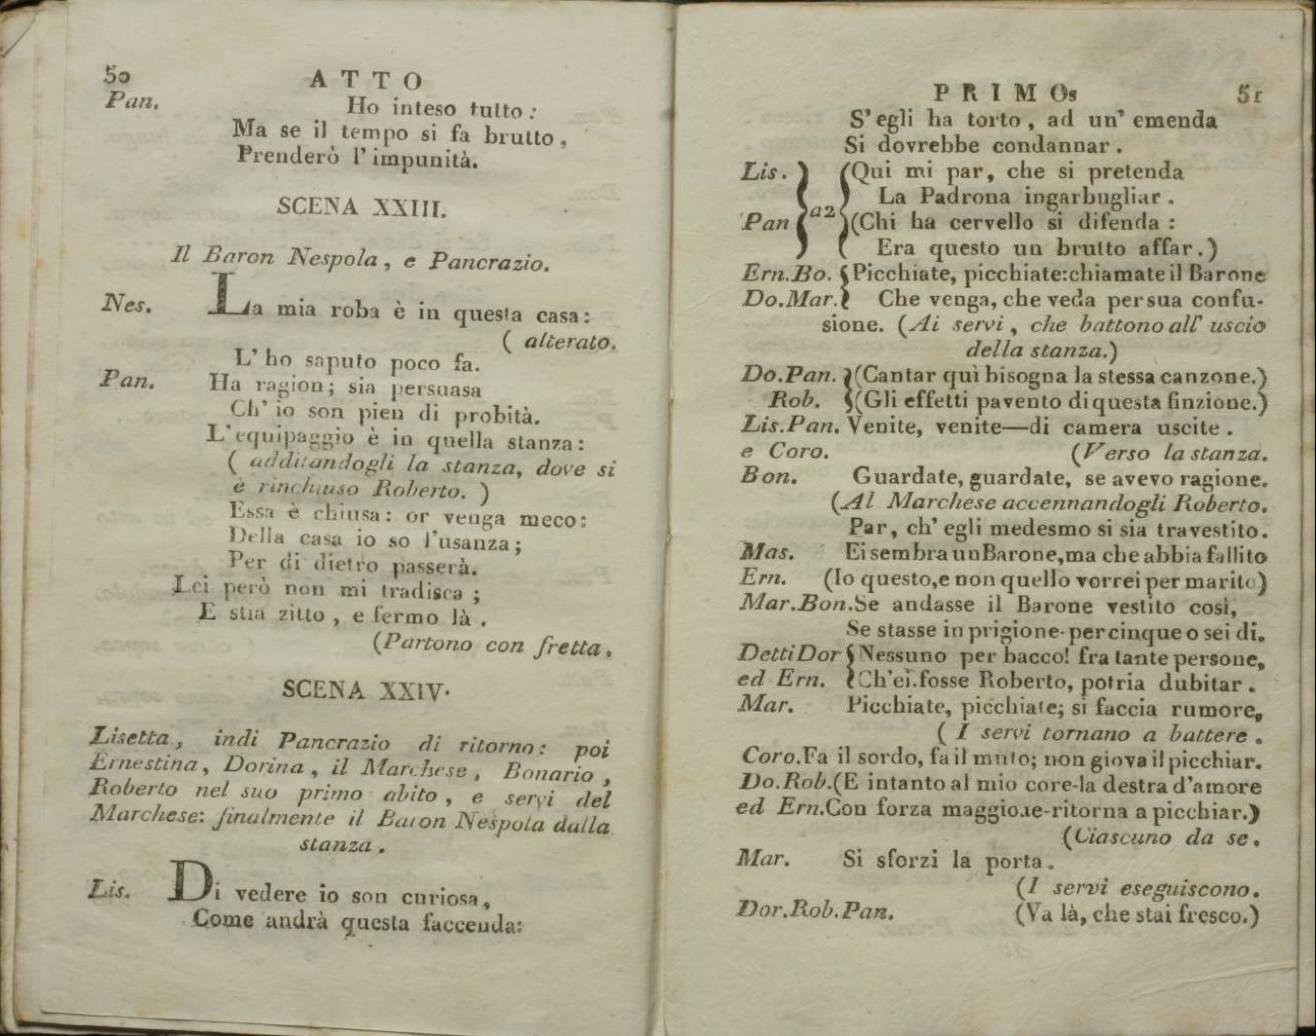 50
ATTO
Pan. Ho inteso tutto:
Ma se il tempo si fa brutto,
Prenderò l'impunità.
SCENA XXIII.
Il Baron Nespola, e Pancrazio.
Nes. La mia roba è in questa casa:
( alterato.
L'ho saputo poco fa.
Pan. Ha ragion; sia persuasa
Ch'io son pien di probità.
L'equipaggio è in quella stanza:
( additandogli la stanza, dove si
è rinchiuso Roberto. )
Essa è chiusa: or venga meco:
Della casa io so l'usanza;
Per di dietro passerà.
Lei però non mi tradisca ;
E stia zitto, e fermo là .
(Partono con fretta.
SCENA XXIV.
Lisetta, indi Pancrazio di ritorno: poi
Ernestina, Dorina, il Marchese, Bonario,
Roberto nel suo primo abito, e servi del
Marchese: finalmente il Baron Nespola dalla
stanza.
Lis. Di vedere io son curiosa,
Come andrà questa faccenda:
PRIMOs
51
S'egli ha torto, ad un' emenda
Si dovrebbe condannar .
Lis. (Qui mi par, che si pretenda
La Padrona ingarbugliar .
a2
Pan (Chi ha cervello si difenda :
Era questo un brutto affar.)
Ern.Bo. Picchiate, picchiate:chiamate il Barone
Do.Mar. Che venga, che veda per sua confu-
sione. (Ai servi, che battono all' uscio
della stanza.)
Do.Pan. (Cantar quì bisogna la stessa canzone.)
Rob. (Gli effetti pavento di questa finzione.)
Lis.Pan. Venite, venite—di camera uscite .
e Coro. (Verso la stanza.
Bon. Guardate, guardate, se avevo ragione.
(Al Marchese accennandogli Roberto.
Par, ch' egli medesmo si sia travestito.
Mas. Ei sembra un Barone, ma che abbia fallito
Ern. (Io questo, e non quello vorrei per marito)
Mar.Bon. Se andasse il Barone vestito così,
Se stasse in prigione-per cinque o sei dì.
Detti Dor Nessuno per bacco! fra tante persone,
ed Ern. Ch'ei.fosse Roberto, potria dubitar .
Mar. Picchiate, picchiate; si faccia rumore,
( I servi tornano a battere .
Coro. Fa il sordo, fa il muto; non giova il picchiar.
Do.Rob. (E intanto al mio core-la destra d'amore
ed Ern. Con forza maggiore-ritorna a picchiar.)
(Ciascuno da se.
Mar. Si sforzi la porta .
(I servi eseguiscono.
Dor.Rob.Pan. (Va là, che stai fresco.)